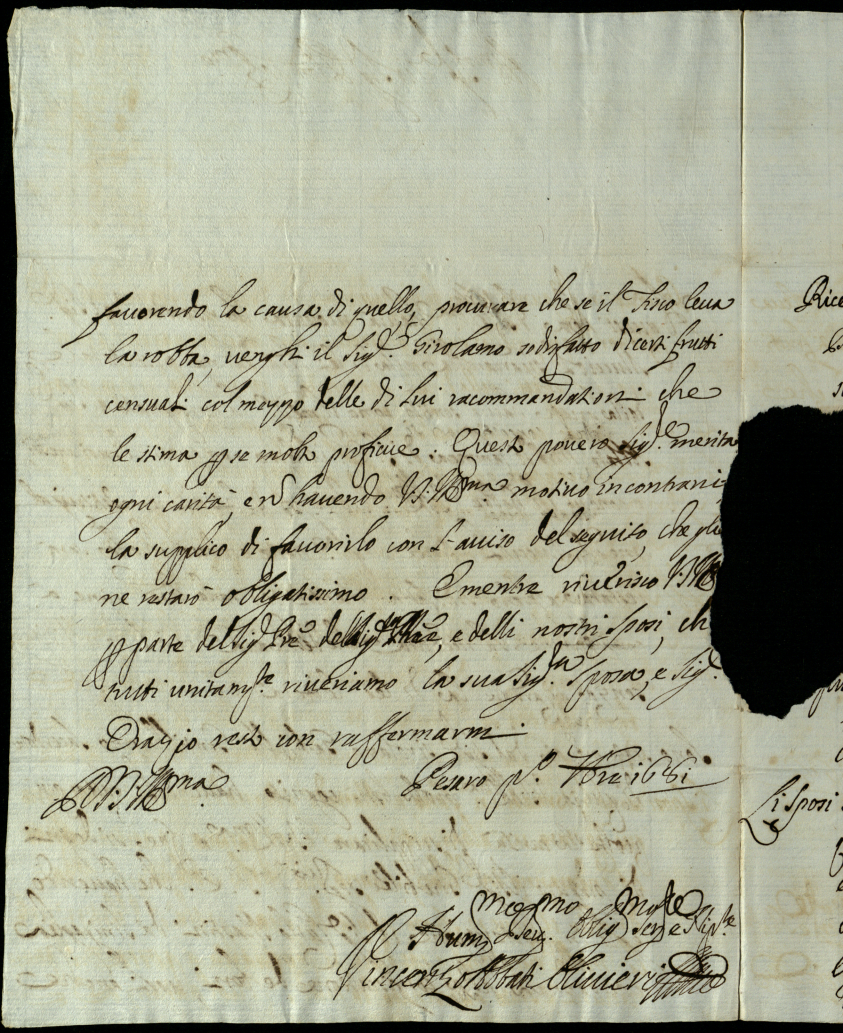 favorendo la causa di quello, procurare che se il Fisco leva
la robba, venghi il Sig.r Girolamo sodisfatto di certi frutti
censuali col mezzo delle di lui racommandationi che
le stima p se molto proficue. Questo povero Sig.re merita
ogni carità, e nõ havendo V.S. Ill.ma motivo in contrario
la supplico di favorirlo con l'aviso del seguito, che gli
ne restarò obligatissimo. E mentre riverisco V.S. Ill
p parte del Sig. Pre e delli nostri sposi, ch
tutti unitam.te riveriamo la sua Sig.ra Sposa, e Sig.
Oragio resto con raffermarmi
D V.S. Ill.ma Pesaro p.o 1681
Hum Dev. Oblig Ser e
Vincenzo Abbati Olivieri
Rice
Li sposi